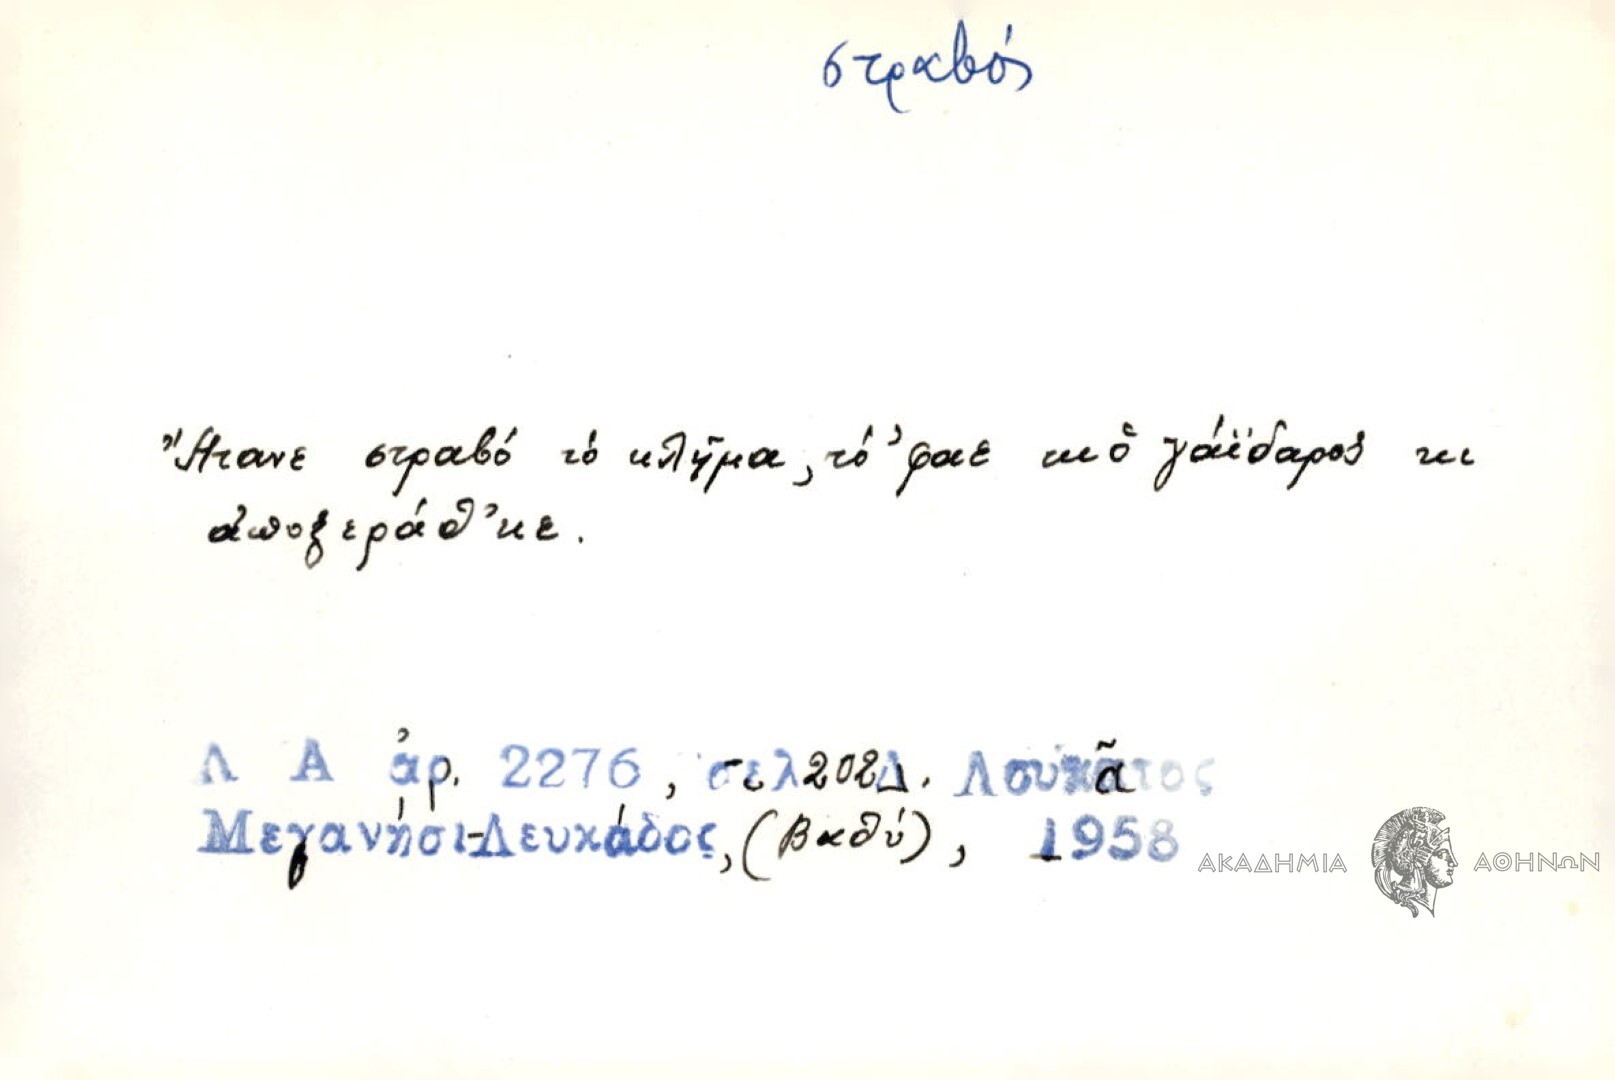 στραβός
Ἤτανε στραβό τό κλῆμα, τό 'φαε κι ὁ γάϊδαρος κι
ἀποξεράθ'κε.
Λ Α ἀρ. 2276, σελ 202 Δ. Λουκᾶτος
Μεγανήσι-Λευκάδος, (Βαθύ), 1958
ΑΚΑΔΗΜΙΑ ΑΘΗΝΩΝ